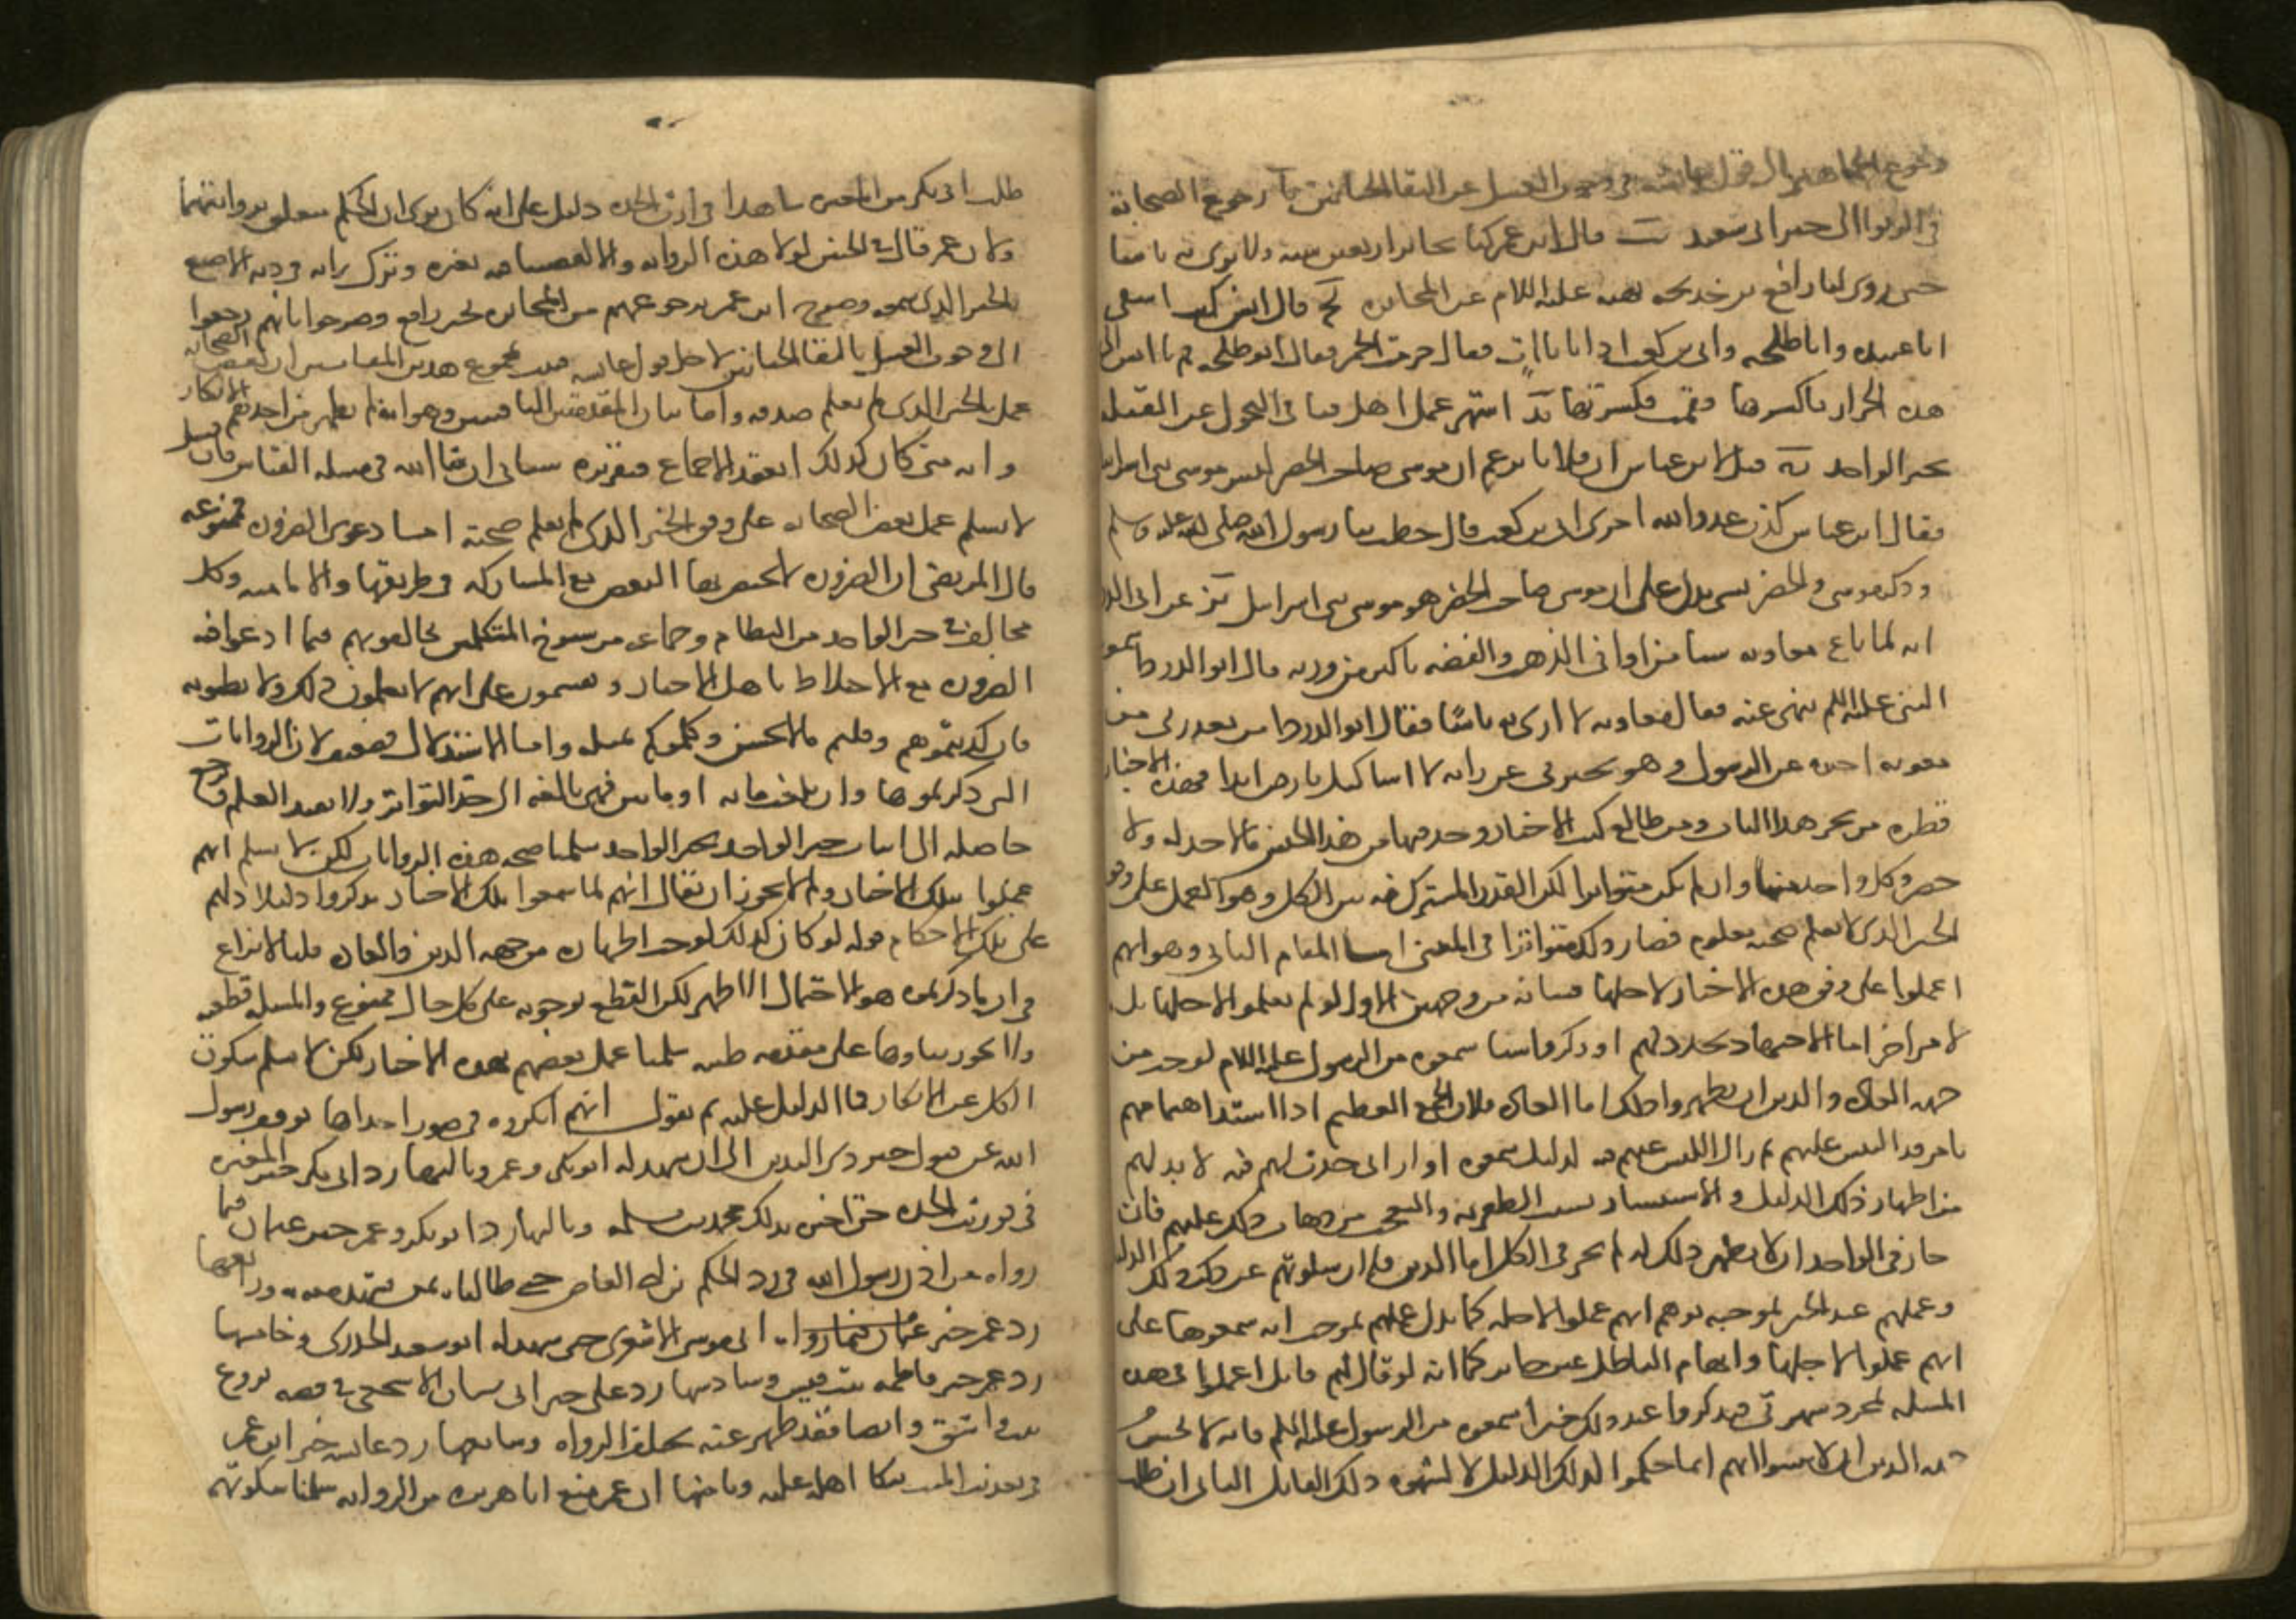 رجوع الجماهير الى قول عائشة في وجوب الغسل عن التقا الختانين يا رجوع الصحابة
في الربوا الى خبر ابي سعيد يب قال ابن عمر كنا نخابر اربعين سنة ولا نرى به باسا
حتى روى لنا رافع بن خديج نهيه عليه السلام عن المخابرة يج قال انس كنت اسقي
ابا عبيدة وابا طلحة وابي بن كعب اذ اتانا ات فقال حرمت الخمر فقال ابو طلحة قم يا انس الى
هذه الجرار فاكسرها فقمت فكسرتها يد اشتهر عمل اهل قبا في التحول عن القبلة
بخبر الواحد يه قيل لابن عباس ان فلانا يزعم ان موسى صاحب الخضر ليس موسى بني اسرايل
فقال ابن عباس كذب عدو الله اخبرني ابي بن كعب قال خطبنا رسول الله صلى الله عليه وسلم
وذكر موسى والخضر بشي يدل على ان موسى صاحب الخضر هو موسى بني اسرايل يو عن ابي الدردا
انه لما باع معاوية شيا من اواني الذهب والفضة باكثر من وزنه قال ابو الدردا سمعت
النبي عليه السلام ينهى عنه فقال معاوية لا ارى به باسا فقال ابو الدردا من يعذرني من
معوية اخبره عن الرسول وهو يخبرني عن رايه لا اساكنك بارض ابدا فهذه الاخبار
قطرة من بحر هذا الباب ومن طالع كتب الاخبار وجد فيها من هذا الجنس ما لا حد له ولا
حصر وكل واحد منها وان لم يكن متواترا لكن القدر المشترك فيه بين الكل وهو العمل على وفق
الخبر الذي لا تعلم صحته معلوم فصار ذلك متواترا في المعنى اما المقام الثاني وهو انهم
اعملوا على وفق هذه الاخبار لاجلها فبيانه من وجهين الاول لو لم يعملوا لاجلها بل
لامر اخر اما لاجتهاد تجدد لهم او ذكروا شيا سمعوه من الرسول عليه السلام لوجب من
جهة العادة والدين ان يظهروا ذلك اما العادة فلان الجمع العظيم اذا اشتد اهتمامهم
بامر قد التبس عليهم ثم زال اللبس عنهم فيه لدليل سمعوه او لراي حدث لهم فيه لا بد لهم
من اظهار ذلك الدليل والاستبشار بسبب الظفر به والتعجب من ذهاب ذلك عليهم فان
جاز في الواحد ان لا يظهر ذلك لم يجز في الكل اما الدين فلان سكوتهم عن ذكر ذلك الدليل
وعملهم عند الخبر بموجبه يوهم انهم عملوا لاجله كما يدل عملهم بموجب اية سمعوها على
انهم عملوا لاجلها وايهام الباطل غير جايز كما انه لو قال لهم قايل اعملوا في هذه
المسلة لمجرد شهوتي فذكروا عند ذلك خبرا سمعوه من الرسول عليه السلم فانه لا يحسن
من الدين ان لا يبينوا انهم انما حكموا لذلك الدليل لا لشهوة ذلك القايل الثاني ان طلب
طلب ابي بكر من المغيرة شاهدا في ارث الجدة دليل على انه كان يرى ان الحكم متعلق بروايتهما
ولان عمر قال في الجنين لولا هذه الرواية والا لقضينا فيه بغيره وترك رايه في دية الاصبع
بالخبر الذي سمعه وصرح ابن عمر برجوعهم عن المخابرة لخبر رافع وصرحوا بانهم رجعوا
الى وجوب الغسل بالتقا الختانين لاجل قول عايشة فثبت بمجموع هذين المقامين ان بعض الصحابة
عمل بالخبر الذي لم يعلم صدقه واما بيان المقدمتين الباقيتين وهو انه لم يظهر من احدهم الانكار
وانه متى كان كذلك انعقد الاجماع فتقريره سياتي ان شا الله في مسلة القياس فان قيل
لا نسلم عمل بعض الصحابة على وفق الخبر الذي لم يعلم صحته اما دعوى الضرورة فممنوعة
قال المرتضى ان الضرورة لا يختص بها البعض مع المشاركة في طريقها والامامية وكل
مخالف في خبر الواحد من النظام وجماعة من شيوخ المتكلمين يخالفونهم فيما ادعوا فيه
الضرورة مع الاختلاط باهل الاخبار ويقسمون على انهم لا يعلمون ذلك ولا يظنونه
فان كذبتموهم وقلتم ما لا يحسن وكلموكم بمثله واما الاستدلال فضعيف لان الروايات
التي ذكرتموها وان بلغت ماية او مايتين فهي بالغة الى حد التواتر ولا تفيد العلم فرجع
حاصله الى اثبات خبر الواحد بخبر الواحد سلمنا صحة هذه الروايات لكن لا نسلم انهم
عملوا بتلك الاخبار ولم لا يجوز ان يقال انهم لما سمعوا تلك الاخبار تذكروا دليلا دلهم
على تلك الاحكام قوله لو كان كذلك لوجب اظهاره من جهة الدين والعادة قلنا لا نزاع
في ان ما ذكرتموه هو الاحتمال الاظهر لكن القطع بوجوبه على كل حال ممنوع والمسلة قطعية
ولا يجوز بناوها على مقدمة ظنية سلمنا عمل بعضهم بهذه الاخبار لكن لا نسلم سكوت
الكل عن الانكار فما الدليل عليه ثم نقول انهم انكروه في صور احداها توقف رسول
الله عن قبول خبر ذي اليدين الى ان شهد له ابو بكر وعمر وثانيها رد ابي بكر خبر المغيرة
في توريث الجدة حتى اخبره بذلك محمد بن مسلمة وثالثها رد ابو بكر وعمر خبر عثمان فيما
رواه من اذن رسول الله في رد الحكم بن ابي العاص حتى طالباه بمن يشهد معه ورابعها
رد عمر خبر عثمان فيما رواه ابي موسى الاشعري حتى شهد له ابو سعيد الخدري وخامسها
رد عمر خبر فاطمة بنت قيس وسادسها رد علي خبر ابي سنان الاشجعي في قصة بروع
بنت واشق وايضا فقد ظهر عنه تحليف الرواة وسابعها رد عايشة خبر ابن عمر
في تعذيب الميت ببكا اهله عليه وثامنها ان عمر منع ابا هريرة من الرواية سلمنا سكوتهم